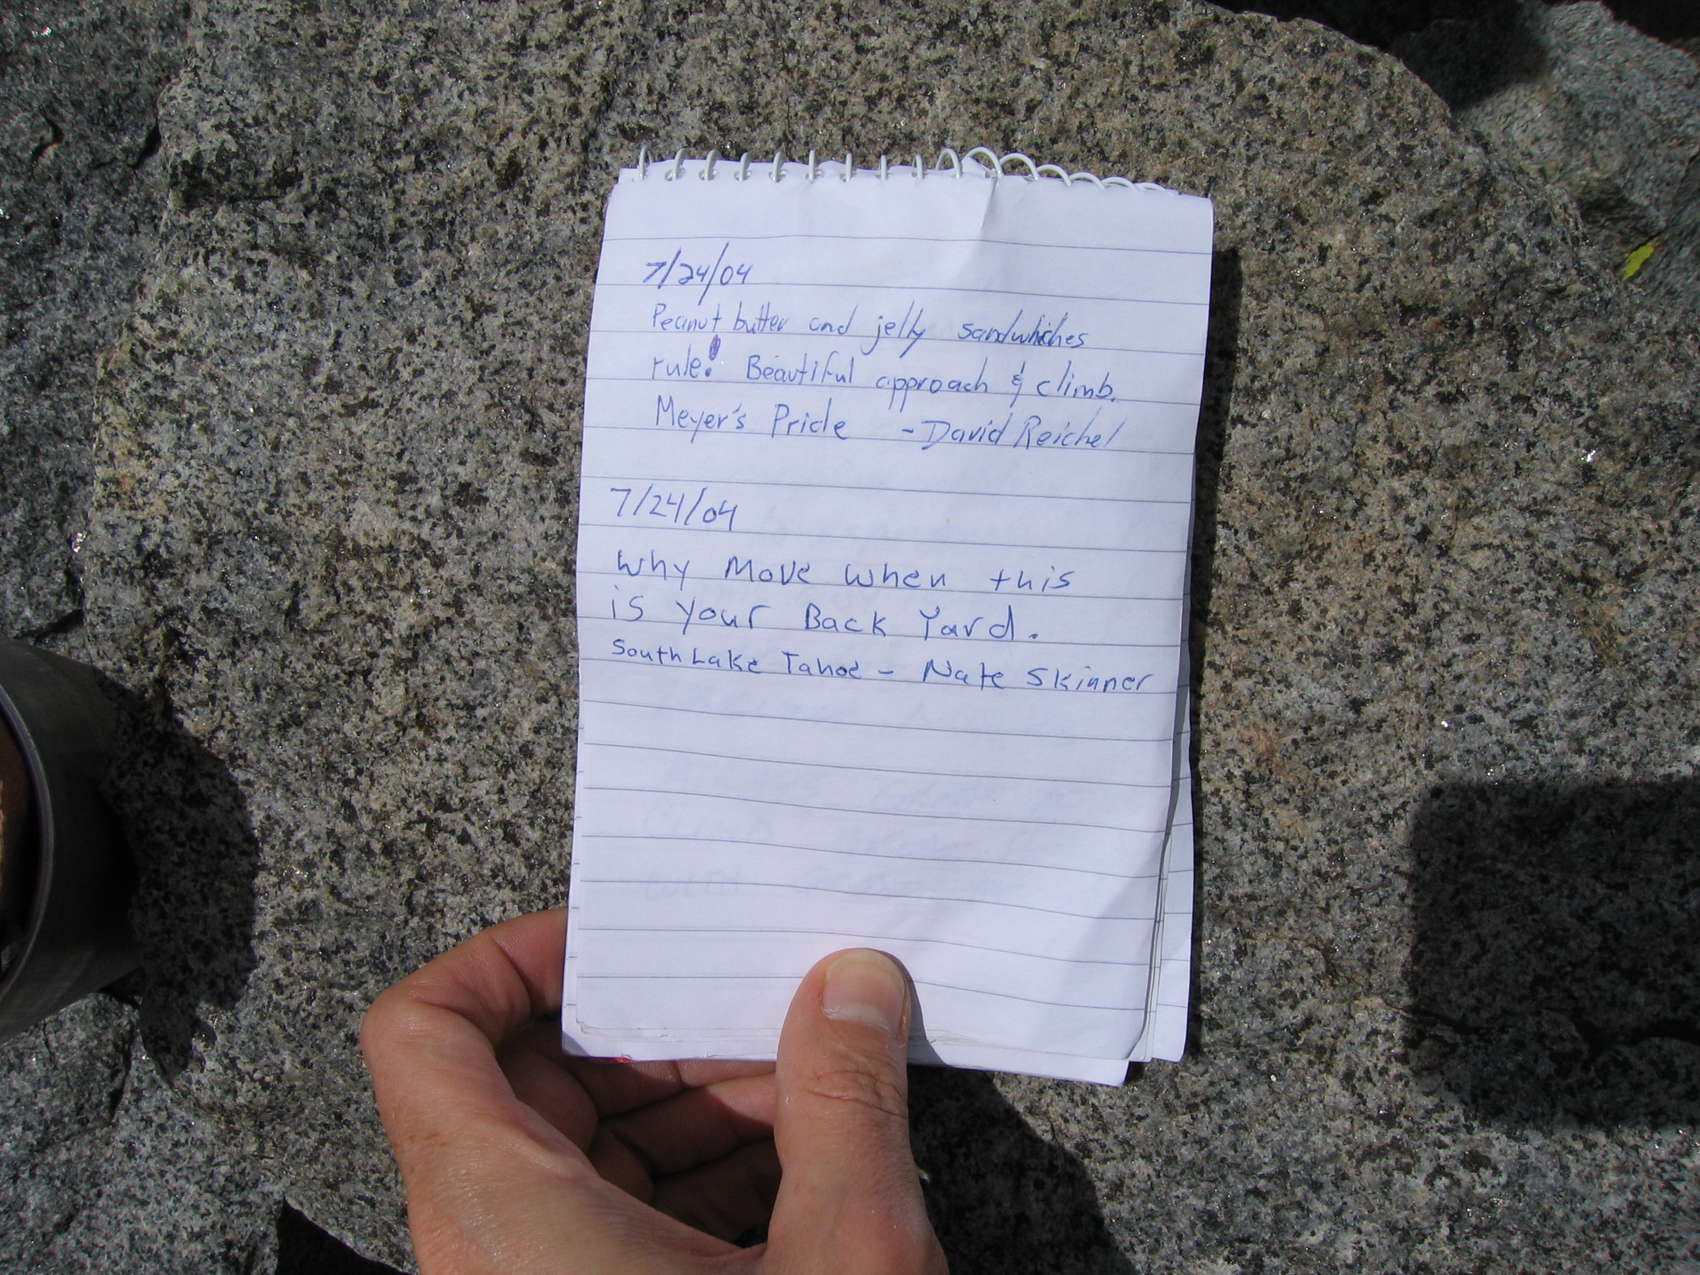 7/24/04
Peanut butter and jelly sandwhiches
rule! Beautiful approach & climb.
Meyer's Pride - David Reichel
7/24/04
Why Move when this
is your Back Yard.
South Lake Tahoe - Nate Skinner